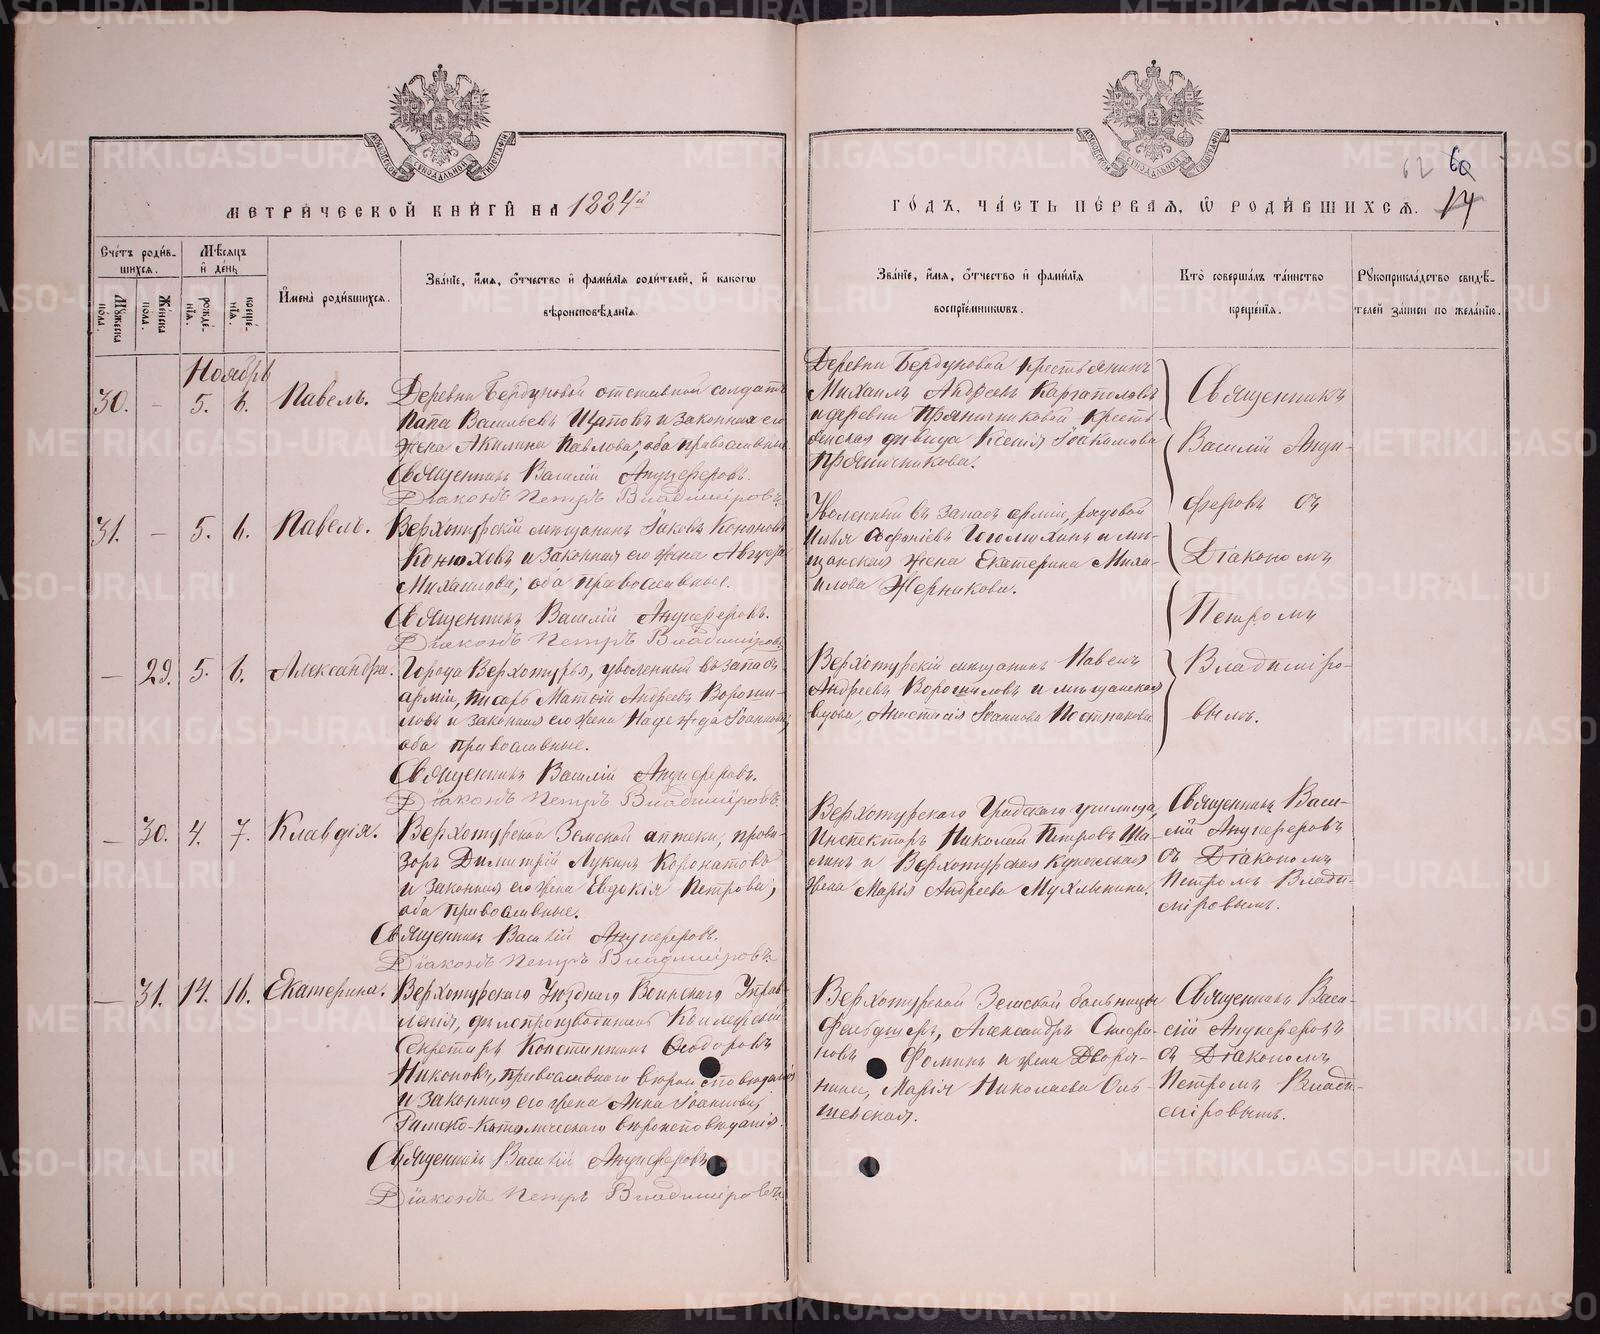 МЕТРИЧЕСКОЙ КНИГИ НА 1884й
ГОДЪ, ЧАСТЬ ПЕРВАЯ, Ѡ РОДИВШИХСЯ.
62 60
14
Счетъ родившихся.
Мужеска пола.
Женска пола.
Мѣсяцъ и день
рожденія.
крещенія.
Имена родившихся.
Званіе, имя, отчество и фамилія родителей, и какогѡ
вѣроисповѣданія.
Званіе, имя, отчество и фамилія
воспріемниковъ.
Кто совершалъ таинство
крещенія.
Рукоприкладство свидѣ-
телей записи по желанію.
Ноябрь
30. – 5. 6. Павелъ.
Деревни Бердуковой отставной солдатъ
Папа Васильевъ Щаповъ и законная его
жена Акилина Павлова; оба православные.
Священникъ Василій Анциферовъ.
Діаконъ Петръ Владиміровъ.
Деревни Бердуковой крестьянинъ
Михаилъ Андреевъ Каргаполовъ
и деревни Пряничниковой кресть-
янская дѣвица Ксенія Іоакимова
Пряничникова.
Священникъ
Василій Анци-
феровъ съ
Діакономъ
Петромъ
Владиміро-
вымъ.
31. – 5. 6. Павелъ.
Верхотурскій мѣщанинъ Іаковъ Кононовъ
Конюховъ и законная его жена Августа
Михаилова; оба православные.
Священникъ Василій Анциферовъ.
Діаконъ Петръ Владиміровъ.
Уволенный въ запасъ арміи, рядовой
Илья и мѣ-
щанская жена Екатерина Миха-
илова Жерникова.
– 29. 5. 6. Александра.
Города Верхотурья, уволенный въ запасъ
арміи, писарь Матѳій Андреевъ Вороши-
ловъ и законная его жена Надежда Іоаннова,
оба православные.
Священникъ Василій Анциферовъ.
Діаконъ Петръ Владиміровъ.
Верхотурскій мѣщанинъ Павелъ
Андреевъ Ворошиловъ и мѣщанская
вдова, Анастасія Іоаннова Постникова
– 30. 4. 7. Клавдія.
Верхотурской Земской аптеки, прови-
зоръ Димитрій Лукинъ Коронатовъ
и законная его жена Евдокія Петрова;
оба православные.
Священникъ Василій Анциферовъ.
Діаконъ Петръ Владиміровъ.
Верхотурскаго Градскаго училища,
Инспекторъ Николай Петровъ Ша-
линъ и Верхотурская купеческая
жена Марія Андреева Мухлынина.
Священникъ Васи-
лій Анциферовъ
съ Діакономъ
Петромъ Влади-
міровымъ.
– 31. 14. 16. Екатерина.
Верхотурскаго Уѣзднаго Воинскаго Управ-
ленія, дѣлопроизводитель Коллежскій
Секретарь Константинъ Ѳеодоровъ
Никоновъ, православнаго вѣроисповѣданія
и законная его жена Анна Іоаннова,
Римско-Католическаго вѣроисповѣданія.
Священникъ Василій Анциферовъ
Діаконъ Петръ Владиміровъ.
Верхотурской Земской больницы
Фельдшеръ, Александръ Стефа-
новъ Фоминъ и жена Дворя-
нина, Марія Николаева Оль-
шевская.
Священникъ Васи-
лій Анциферовъ
съ Діакономъ
Петромъ Влади-
міровымъ.
METRIKI.GASO-URAL.RU